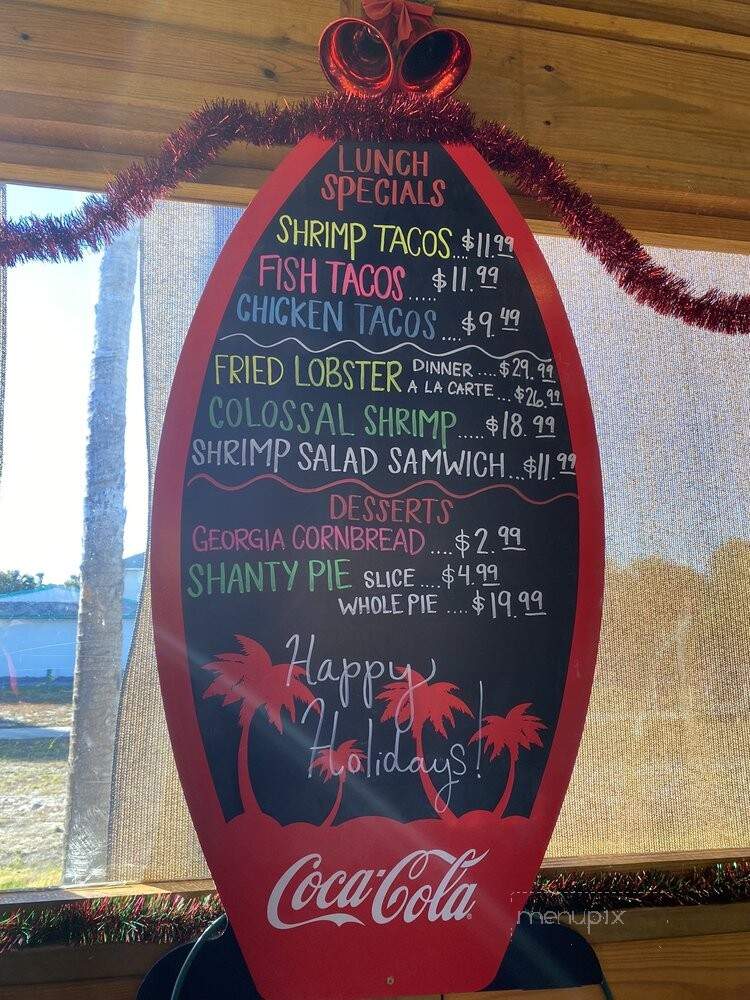 LUNCH
SPECIALS
SHRIMP TACOS $11.99
FISH TACOS ..... $11.99
CHICKEN TACOS .... $9.49
FRIED LOBSTER DINNER .... $29.99
A LA CARTE ... $26.99
COLOSSAL SHRIMP ..... $18.99
SHRIMP SALAD SAMWICH ... $11.99
DESSERTS
GEORGIA CORNBREAD .... $2.99
SHANTY PIE SLICE .... $4.99
WHOLE PIE .... $19.99
Happy
Holidays!
Coca-Cola
menupix